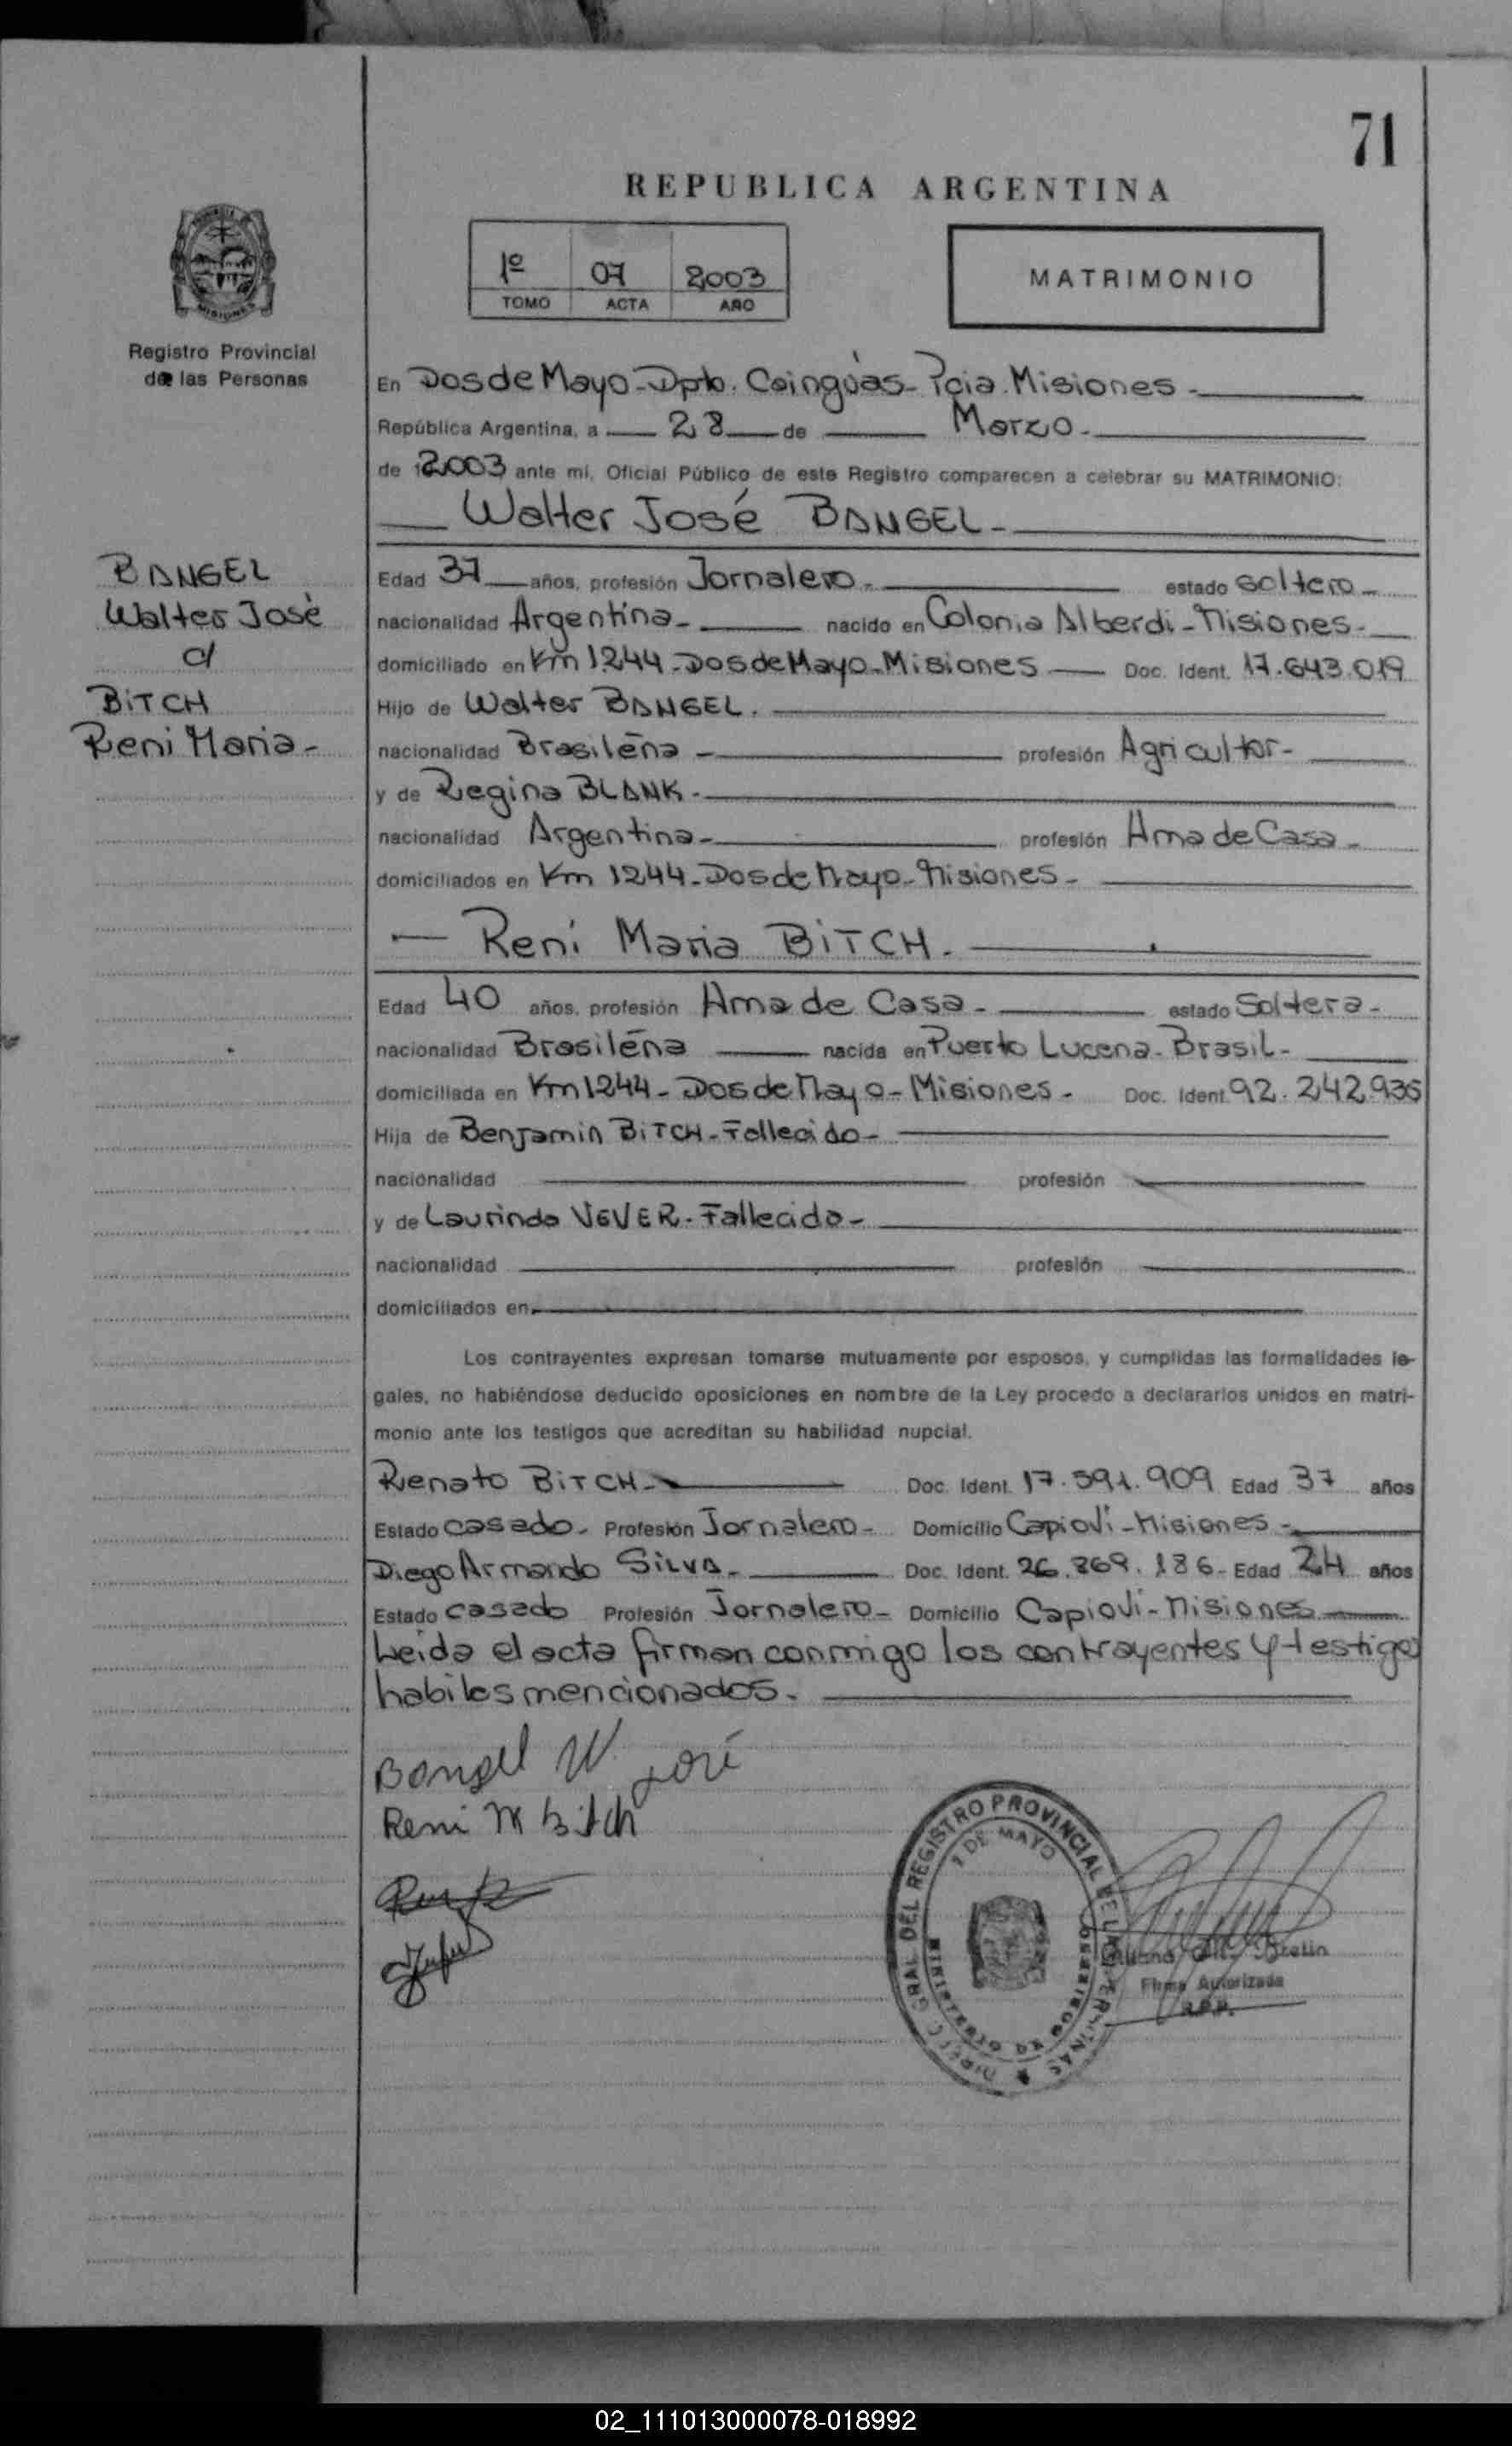 71
REPUBLICA ARGENTINA
1º 07 2003
TOMO ACTA AÑO
MATRIMONIO
MISIONES
Registro Provincial
de las Personas
En Dos de Mayo - Dpto. Cainguás - Pcia. Misiones -
República Argentina, a 28 de Marzo -
de 2003 ante mi, Oficial Público de este Registro comparecen a celebrar su MATRIMONIO:
Walter José BANGEL -
BANGEL
Walter José
c/
BITCH
Reni Maria -
Edad 37 años, profesión Jornalero - estado Soltero -
nacionalidad Argentina - nacido en Colonia Alberdi - Misiones -
domiciliado en Km 1244 - Dos de Mayo - Misiones - Doc. Ident. 17.643.019
Hijo de Walter BANGEL.
nacionalidad Brasileña - profesión Agricultor -
y de Regina BLANK -
nacionalidad Argentina - profesión Ama de Casa -
domiciliados en Km 1244 - Dos de Mayo - Misiones -
Reni Maria BITCH -
Edad 40 años, profesión Ama de Casa - estado Soltera -
nacionalidad Brasileña nacida en Puerto Lucena - Brasil -
domiciliada en Km 1244 - Dos de Mayo - Misiones - Doc. Ident. 92.242.936
Hija de Benjamin BITCH - Fallecido -
nacionalidad profesión
y de Laurinda VEVER - Fallecida -
nacionalidad profesión
domiciliados en
Los contrayentes expresan tomarse mutuamente por esposos, y cumplidas las formalidades le-
gales, no habiéndose deducido oposiciones en nombre de la Ley procedo a declararlos unidos en matri-
monio ante los testigos que acreditan su habilidad nupcial.
Renato BITCH - Doc. Ident. 17.591.909 Edad 37 años
Estado casado - Profesión Jornalero - Domicilio Capiovi - Misiones -
Diego Armando SILVA - Doc. Ident. 26.869.186 - Edad 24 años
Estado casado Profesión Jornalero - Domicilio Capiovi - Misiones
Leida el acta firman conmigo los contrayentes y testigo
habiles mencionados -
Bangel W José
Reni M Bitch
DIREC. GRAL DEL REGISTRO PROVINCIAL DE LAS PERSONAS
DE MAYO
MINISTERIO DE GOBIERNO
Firma Autorizada
R.P.P.
02_111013000078-018992